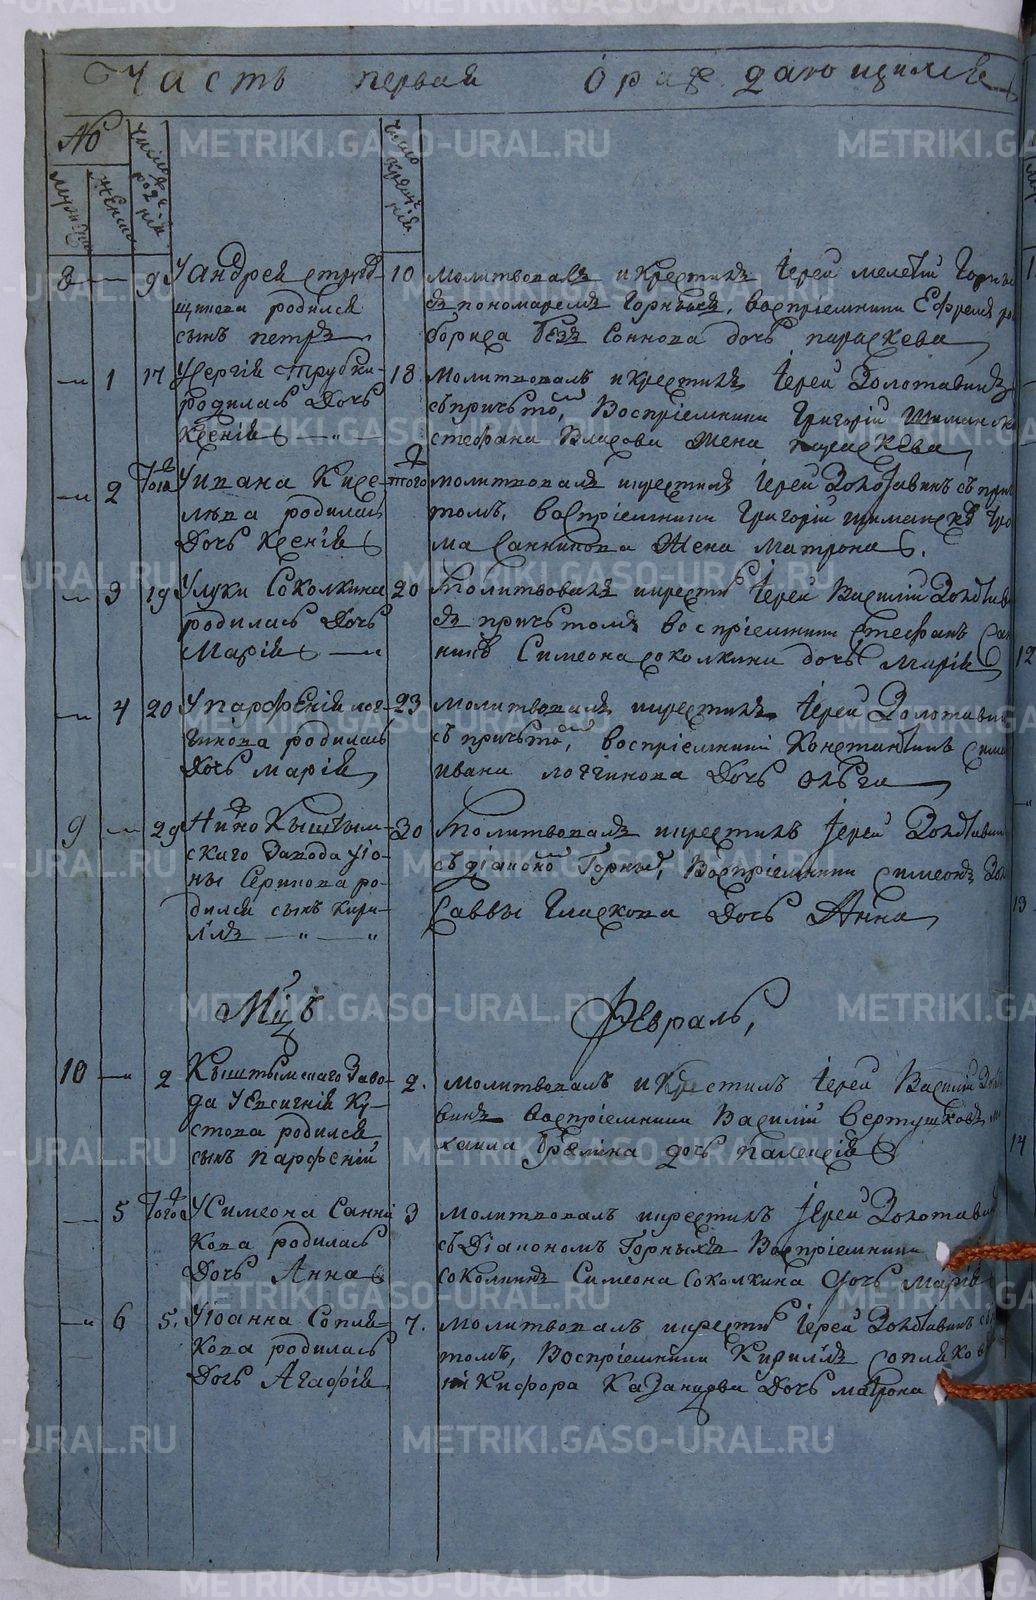 Часть первая о раждающихся
№
мужеска
женска
число рожденiй
число крещенiй
8 — 9 У Андрея Струн-
щикова родился
сынъ Петръ
10 молитвовалъ и крестилъ Iерей Мелетiй Горн
съ пономаремъ Горныхъ, воспрiемники Ефремъ
Бориса Санникова дочь Параскева
— 1 17 У Сергiя Трубки-
родилась дочь
Ксенiя
18 молитвовалъ и крестилъ Iерей Золотавинъ
съ причьтомъ, воспрiемники Григорiй Шиманск
Стефана Власова жена Параскева
— 2 Того У Ивана Кисе-
лѣва родилась
дочь Ксенiя
того молитвовалъ и крестилъ Iерей Золотавинъ съ при
томъ, воспрiемники Григорiй Шиманск
ма Санникова жена Матрона
— 3 19 У Луки Соколкина
родилась дочь
Марiя
20 молитвовалъ и крести Iерей Василiй Золотави
съ причьтомъ воспрiемники Стефанъ Сан
никъ Симеона Соколкина дочь Марiя
— 4 20 У Парфенiя лог-
гинова родилась
дочь Марiя
23 молитвовалъ и крестилъ Iерей Золотавин
съ причьтомъ, воспрiемники Константинъ
Ивана Логгинова дочь Ольга
9 — 29 Нижнокыштым-
скаго завода У Iо-
ны Серикова ро-
дился сынъ Кири-
ллъ
30 молитвовалъ и крестилъ Iерей Золотавин
съ дiакономъ Горных, воспрiемники Симеонъ
Саввы Гласкова дочь Анна
Мцъ Февраль,
10 — 2 Кыштымскаго Заво-
да У Евсигнiя Ку-
стова родился
сынъ Парфенiй
2. молитвовалъ и крестилъ Iерей Василiй Золо
винъ воспрiемники Василiй Вертушковъ, м
хаила дочь Палексiя
— 5 Того У Симеона Санни
кова родилась
дочь Анна
3 молитвовалъ и крестилъ Iерей Золотавин
съ Дiакономъ Горныхъ воспрiемники
Соколкинъ Симеона Соколкина дочь Марiя
— 6 5. У Iоанна Сопля-
кова родилась
дочь Агафiя
7. молитвовалъ и крести Iерей Золотавинъ съ
томъ, воспрiемники Кириллъ Сопляков
Никифора Казанцова дочь Матрона
12
13
14
METRIKI.GASO-URAL.RU